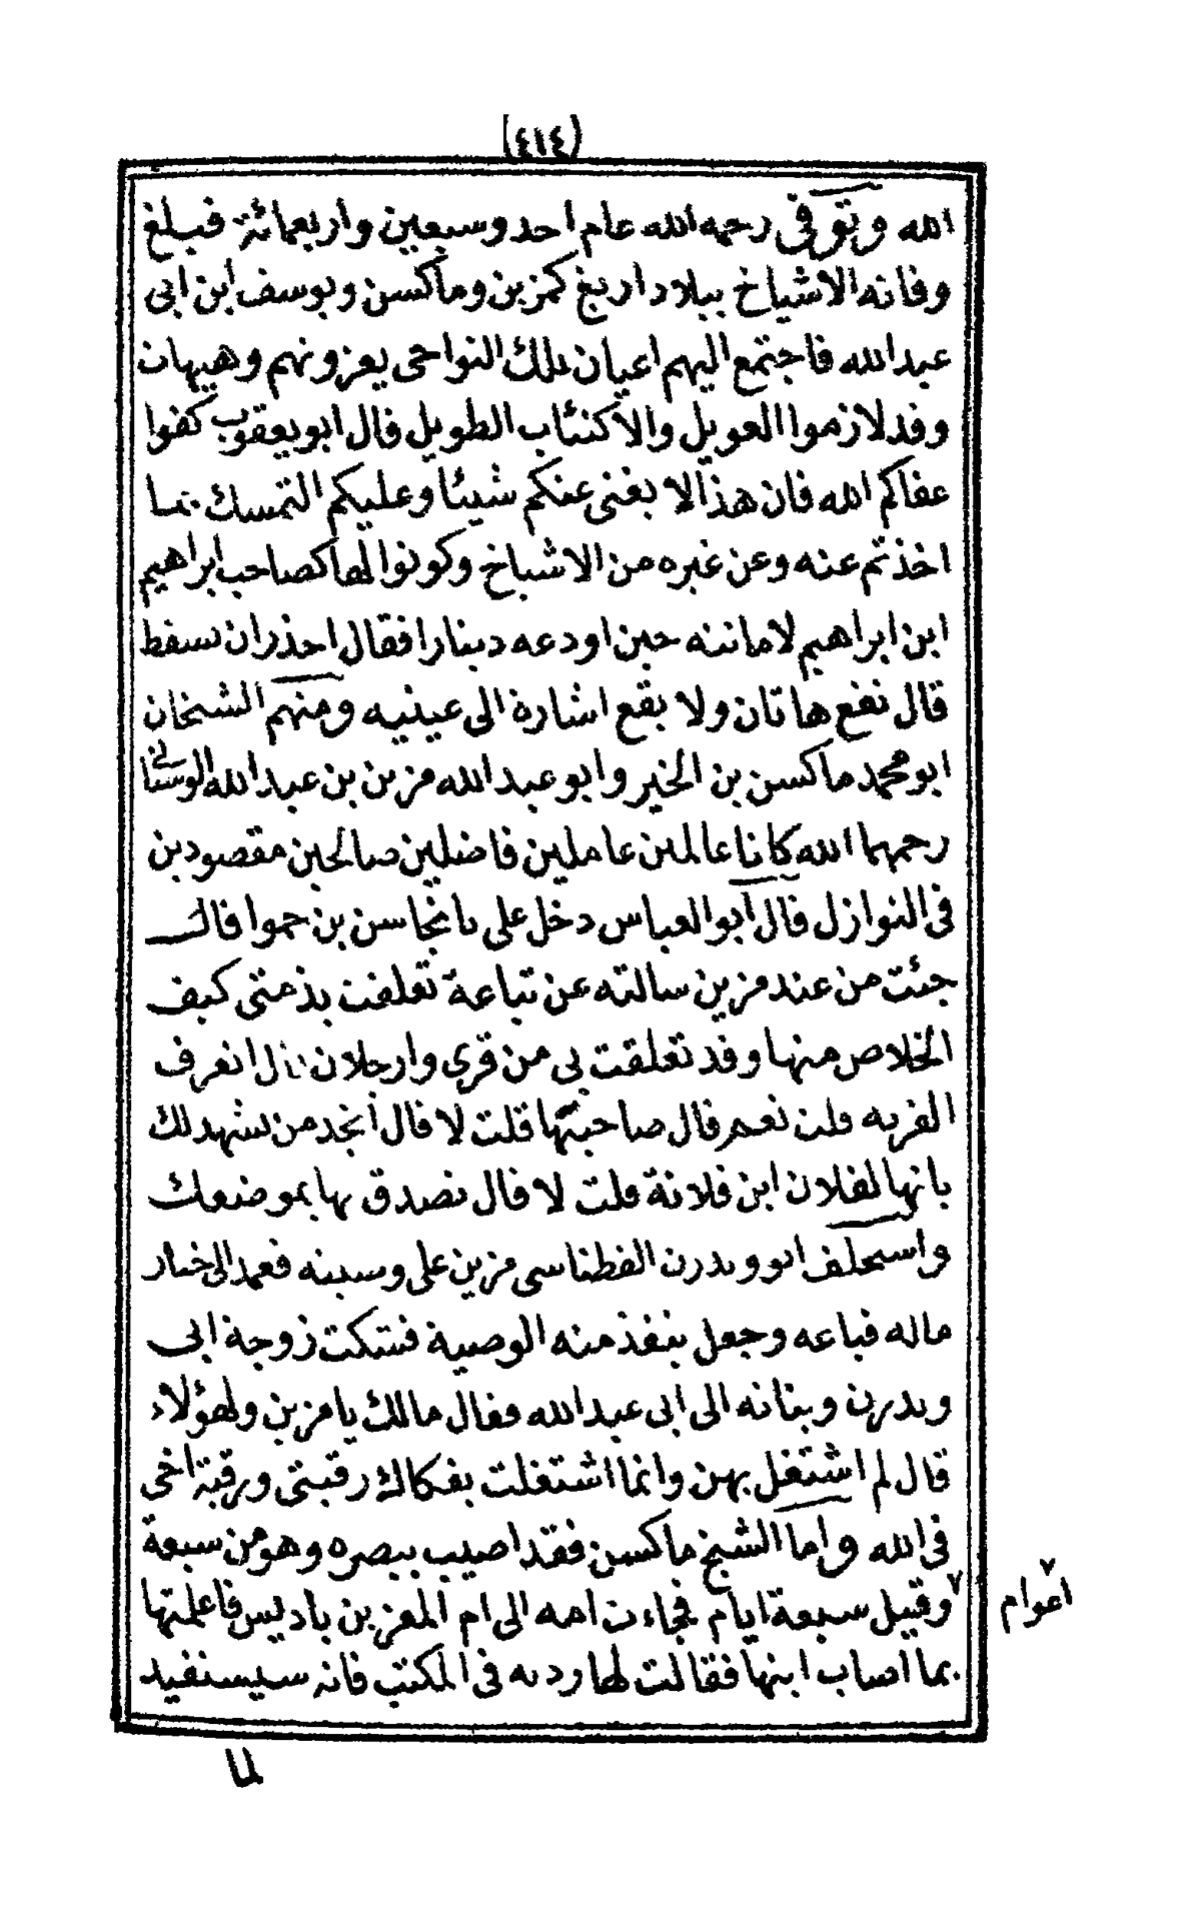 (٤١٤)
الله وتوفى رحمه الله عام احد وسبعين واربعمائة فبلغ
وفاته الاشياخ ببلاد اريغ كمزين وماكسن ويوسف ابن ابى
عبد الله فاجتمع اليهم اعيان تلك النواحى يعزونهم وهيهات
وقد لازموا العويل والاكتئاب الطويل قال ابو يعقوب كفوا
عفاكم الله فان هذا لا يغنى عنكم شيئا وعليكم التمسك بما
اخذتم عنه وعن غيره من الاشياخ وكونوا لها كصاحب ابراهيم
ابن ابراهيم لامانته حين اودعه دينارا فقال احذر ان تسقط
قال تقع هاتان ولا يقع اشارة الى عينيه ومنهم الشيخان
ابو محمد ماكسن بن الخير وابو عبد الله مزين بن عبد الله الوسيانى
رحمهما الله كانا عالمين عاملين فاضلين صالحين مقصودين
فى النوازل قال ابو العباس دخل على يانجاسن بن حموا قال
جئت من عند مزين سالته عن تباعة تعلقت بذمتى كيف
الخلاص منها وقد تعلقت بى من قرى وارجلان قال اتعرف
القرية قلت نعم قال صاحبتها قلت لا قال اتجد من يشهد لك
بانها لفلان ابن فلانة قلت لا قال تصدق بها بموضعك
واستخلف ابو ويدرن الفطناسى مزين على وصيته فعمد الى خيار
ماله فباعه وجعل ينفذ منه الوصية فشكت زوجة ابى
ويدرن وبناته الى ابى عبد الله فقال مالك يا مزين ولهؤلاء
قال لم اشتغل بهن وانما اشتغلت بفكاك رقبتى ورقبة اخى
فى الله واما الشيخ ماكسن فقد اصيب ببصره وهو من سبعة
وقيل سبعة ايام فجاءت امه الى ام المعز بن باديس فاعلمتها
اعوام
بما اصاب ابنها فقالت لها رديه فى المكتب فانه سيستفيد
لما